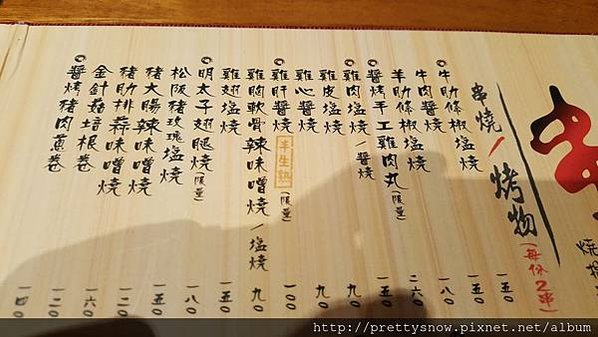 燒揚
串燒/烤物(每份2串)
牛肋條椒塩燒 一五〇
牛肉醬燒 一五〇
羊肋條椒塩燒 一八〇
醬烤手工雞肉丸(限量) 二六〇
雞肉塩燒/醬燒 一五〇
雞皮塩燒 九〇
雞心醬燒 九〇
雞肝醬燒 半生熟 (限量) 一〇〇
雞胸軟骨辣味噌燒/塩燒 九〇
雞翅塩燒 一五〇
明太子翅腿燒(限量) 一八〇
松阪豬玫瑰塩燒 一五〇
豬大腸辣味噌燒 一二〇
豬肋排蒜味噌燒 一六〇
金針菇培根卷 一二〇
醬烤豬肉蔥卷 一四〇
http://prettysnow.pixnet.net/album